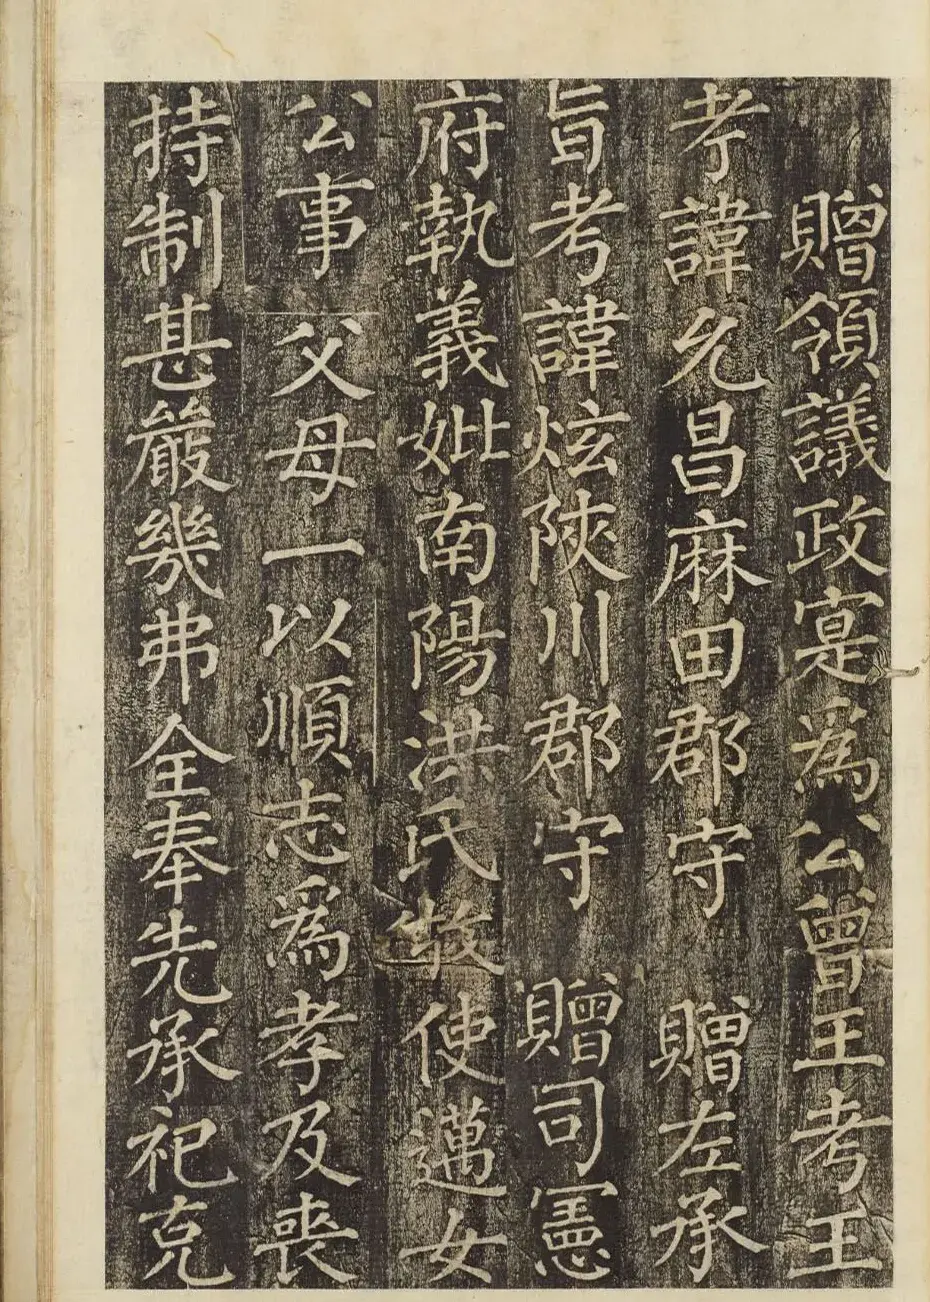 贈領議政寔爲公曾王考王
考諱允昌麻田郡守 贈左承
旨考諱炫陜川郡守 贈司憲
府執義妣南陽洪氏牧使邁女
公事 父母一以順志爲孝及喪
持制甚嚴幾弗全奉先承祀克